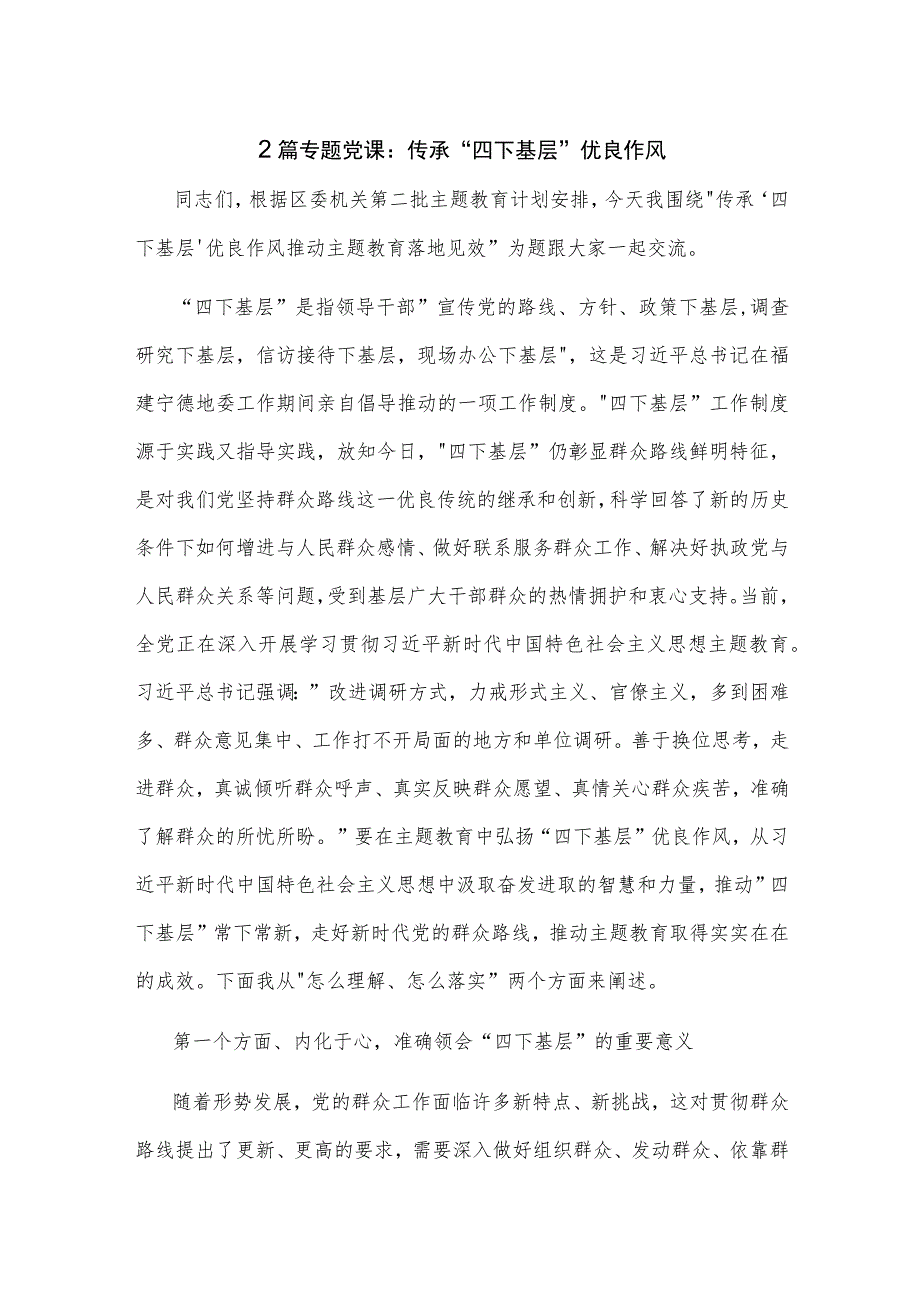 2篇专题党课：传承“四下基层”优良作风
同志们，根据区委机关第二批主题教育计划安排，今天我围绕"传承‘四
下基层'优良作风推动主题教育落地见效”为题跟大家一起交流。
“四下基层”是指领导干部”宣传党的路线、方针、政策下基层,调查
研究下基层，信访接待下基层，现场办公下基层"，这是习近平总书记在福
建宁德地委工作期间亲自倡导推动的一项工作制度。"四下基层”工作制度
源于实践又指导实践，放知今日，"四下基层”仍彰显群众路线鲜明特征，
是对我们党坚持群众路线这一优良传统的继承和创新，科学回答了新的历史
条件下如何增进与人民群众感情、做好联系服务群众工作、解决好执政党与
人民群众关系等问题，受到基层广大干部群众的热情拥护和衷心支持。当前，
全党正在深入开展学习贯彻习近平新时代中国特色社会主义思想主题教育。
习近平总书记强调：”改进调研方式，力戒形式主义、官僚主义，多到困难
多、群众意见集中、工作打不开局面的地方和单位调研。善于换位思考，走
进群众，真诚倾听群众呼声、真实反映群众愿望、真情关心群众疾苦，准确
了解群众的所忧所盼。”要在主题教育中弘扬“四下基层”优良作风，从习
近平新时代中国特色社会主义思想中汲取奋发进取的智慧和力量，推动”四
下基层”常下常新，走好新时代党的群众路线，推动主题教育取得实实在在
的成效。下面我从"怎么理解、怎么落实”两个方面来阐述。
第一个方面、内化于心，准确领会“四下基层”的重要意义
随着形势发展，党的群众工作面临许多新特点、新挑战，这对贯彻群众
路线提出了更新、更高的要求，需要深入做好组织群众、发动群众、依靠群